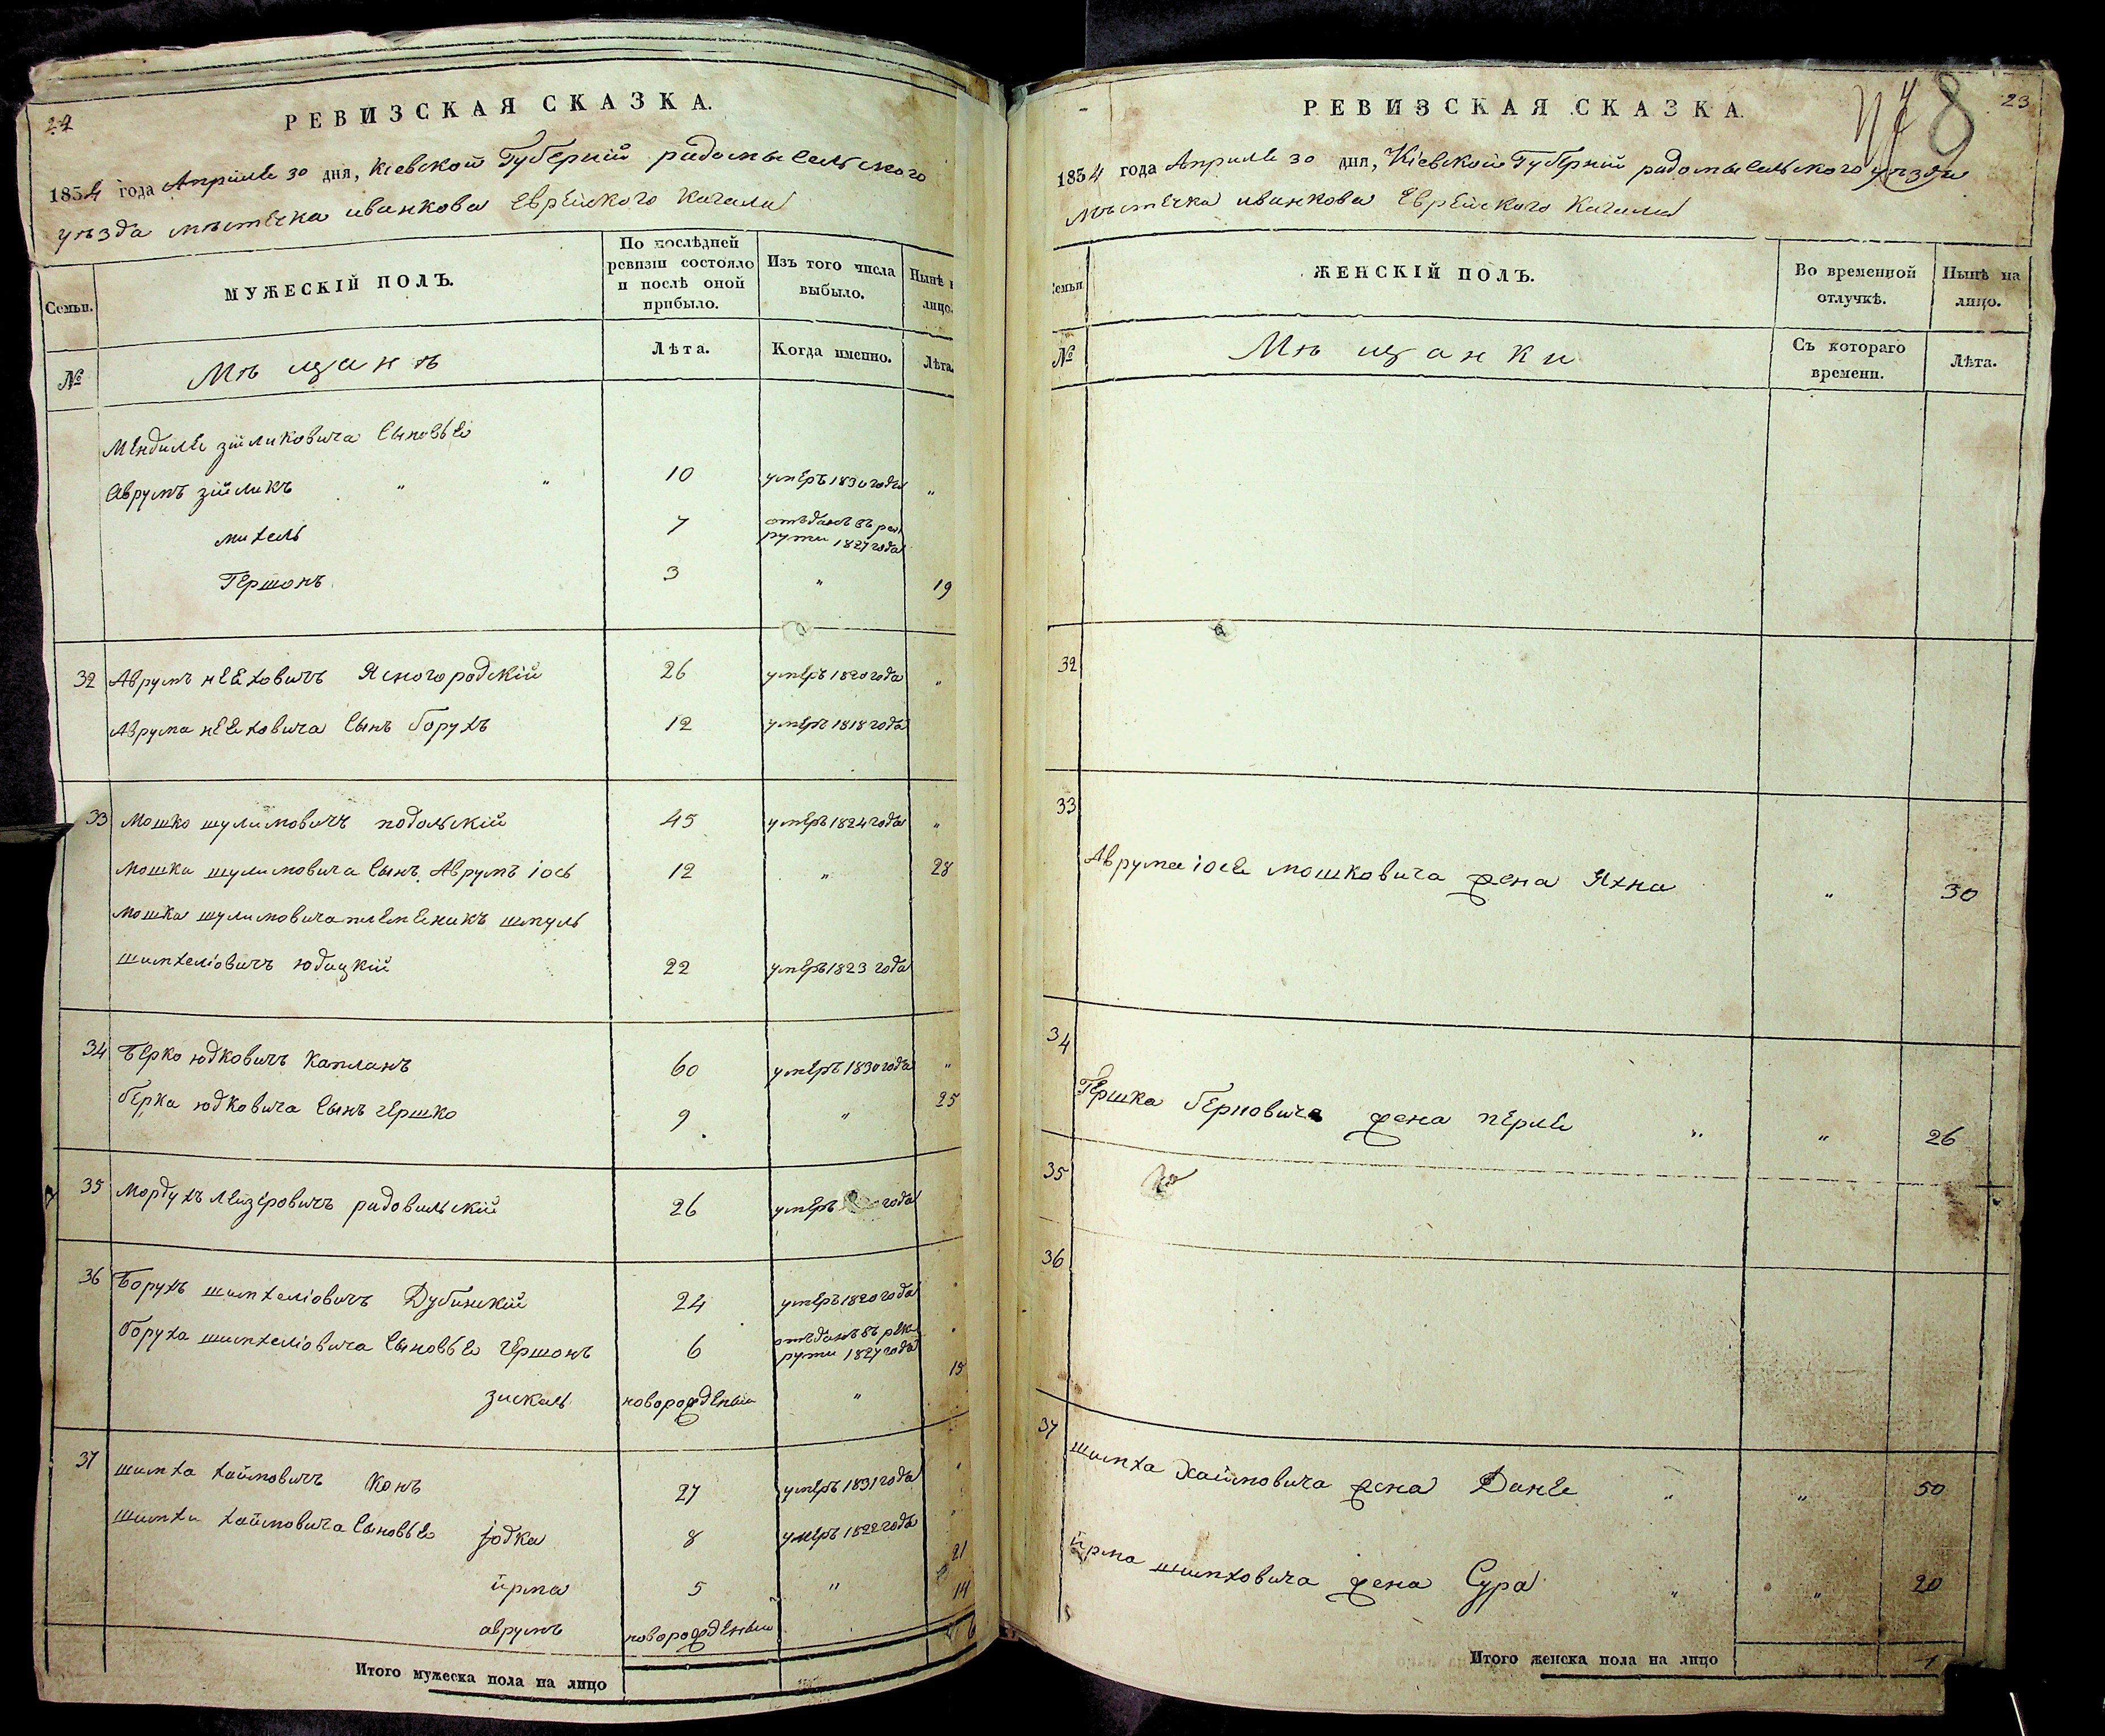 22
РЕВИЗСКАЯ СКАЗКА.
1834 года Апреля 30 дня, Кіевской Губерніи радомысельского
уѣзда мѣстечка иванкова Еврейского Кагала
Семьи.
МУЖЕСКІЙ ПОЛЪ.
По послѣдней ревизіи состояло и послѣ оной прибыло.
Изъ того числа выбыло.
Нынѣ н лицо.
№
Мѣщанѣ
Лѣта.
Когда именно.
Лѣта.
Менделя зйликовича Сыновья
Аврумъ зйликъ " " 10 умеръ 1830 года "
михель 7 отъданъ въ рек
рути 1827 года
Гершонъ 3 " 19
32 Аврумъ неяховичъ Ясногородскій 26 умеръ 1820 года "
Аврума неяховича Сынъ борухъ 12 умеръ 1818 года
33 Мошко шулимовичъ подольскій 45 умеръ 1824 года "
мошка шулимовича Сынъ Аврумъ іось 12 " 28
мошка шулимовича племеникъ шмуль
шимхеліовичъ юдицкій 22 умеръ 1823 года
34 Берко юдковичъ Капланъ 60 умеръ 1830 года "
берка юдковича Сынъ гершко 9 " 25
35 Мордухъ лейзеровичъ радовильскій 26 умеръ года
36 Борухъ шимхеліовичъ Дубинскій 24 умеръ 1820 года
боруха шимхеліовича Сыновья гершонъ 6 отъданъ въ рек
рути 1827 года
зискель новорожденый " 15
37 шимха хаймовичъ Конъ 27 умеръ 1831 года
шимхи хаймовича Сыновья юдка 8 умеръ 1822 года
йрма 5 " 21
аврумъ новорожденый 14
Итого мужеска пола на лицо 6
23
8
РЕВИЗСКАЯ СКАЗКА.
1834 года Апреля 30 дня, Кіевской Губерніи радомысельского уѣзда
мѣстечка иванкова Еврейского Кагала
Семьи
ЖЕНСКІЙ ПОЛЪ.
Во временной отлучкѣ.
Нынѣ на лицо.
№
Мѣщанки
Съ котораго времени.
Лѣта.
32
33
Аврума іося мошковича жена Яхна " 30
34
Гершка берковича жена перля " " 26
35
36
37
шимха хаймовича жена Даня " " 50
йрма шимховича жена Сура " " 20
Итого женска пола на лицо